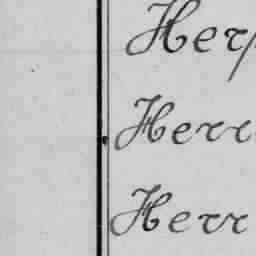 Herp
Herr
Herr